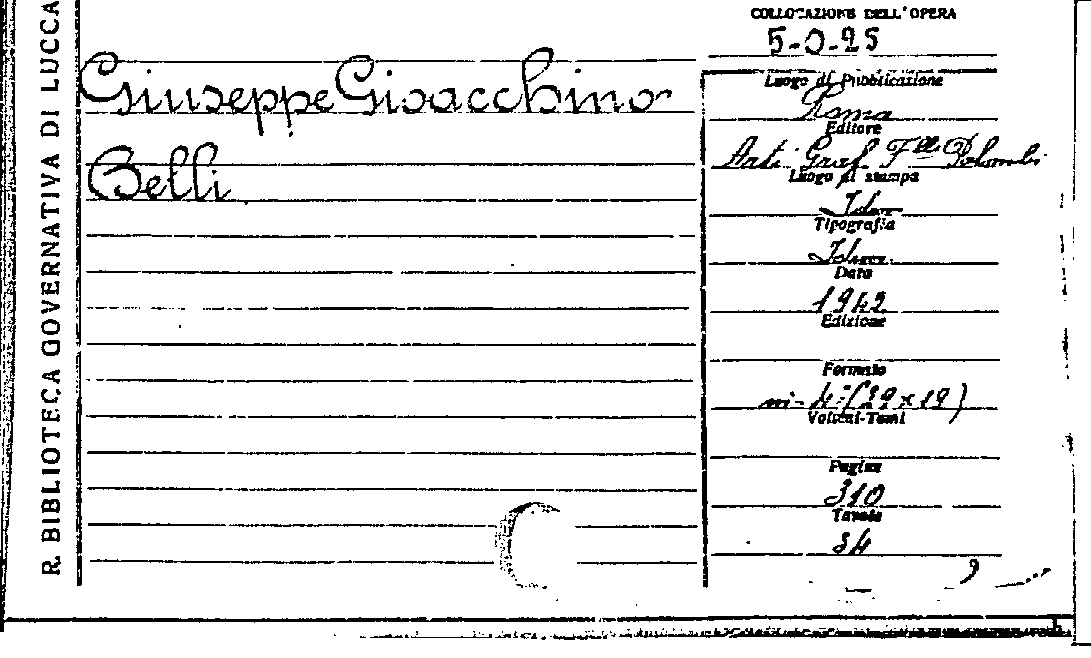 R. BIBLIOTECA GOVERNATIVA DI LUCCA
Giuseppe Gioacchino
Belli
COLLOCAZIONE DELL'OPERA
5-0-25
Luogo di Pubblicazione
Roma
Editore
Arti Graf. F.lli Palombi
Luogo di stampa
Idem
Tipografia
Idem
Data
1942
Edizione
Formato
in-4° (29x19)
Volumi-Tomi
Pagine
310
Tavole
34